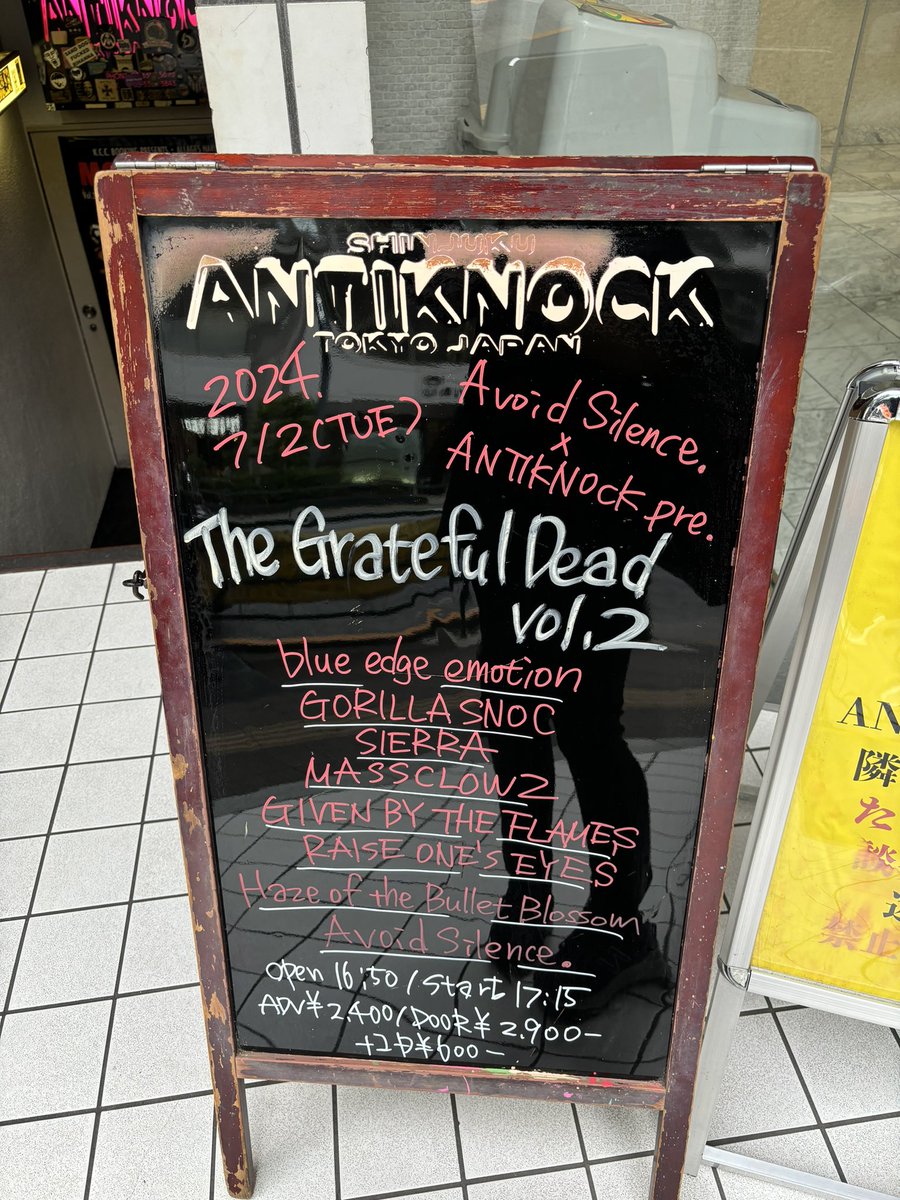 SHINJUKU
ANTIKNOCK
TOKYO JAPAN
2024.
7/2(TUE)
Avoid Silence.
×
ANTIKNOCK pre.
The Grateful Dead
vol.2
blue edge emotion
GORILLA SNOC
SIERRA
MASSCLOWZ
GIVEN BY THE FLAMES
RAISE ONE'S EYES
Haze of the Bullet Blossom
Avoid Silence.
Open 16:50 / Start 17:15
ADV¥2.400/DOOR¥2.900-
+1D¥600-
AN
隣
た
禁止